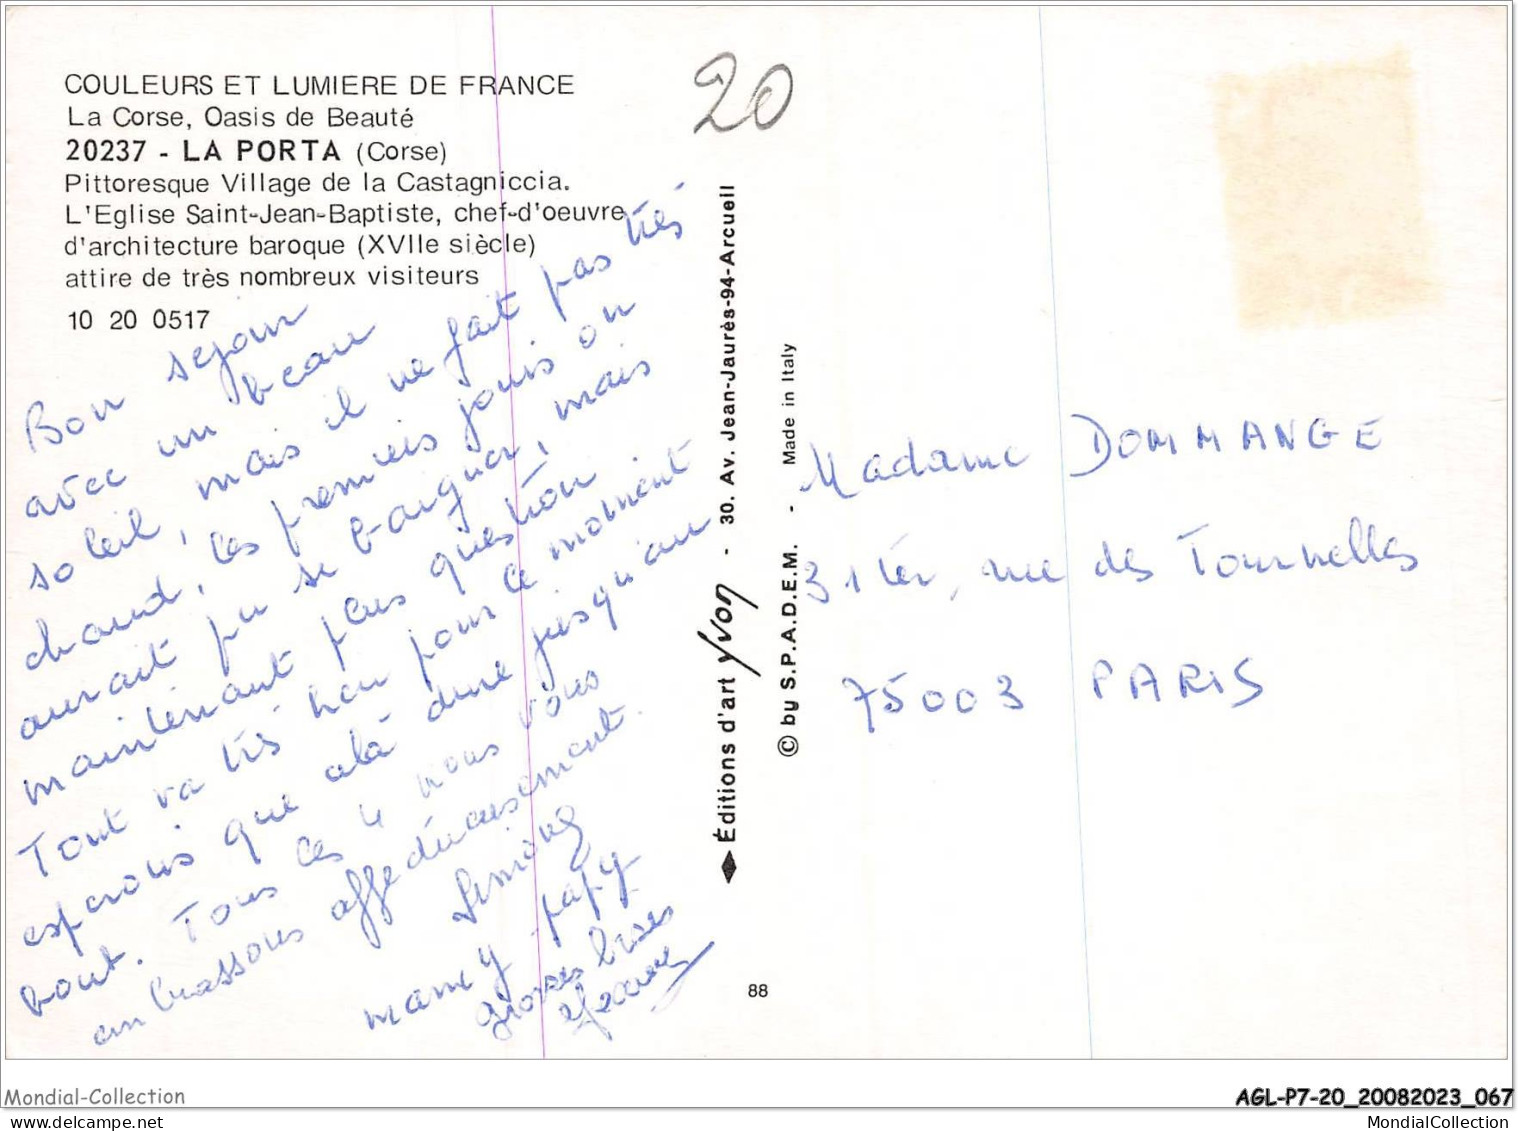 COULEURS ET LUMIERE DE FRANCE
La Corse, Oasis de Beauté
20237 - LA PORTA (Corse)
Pittoresque Village de la Castagniccia.
L'Eglise Saint-Jean-Baptiste, chef-d'oeuvre
d'architecture baroque (XVIIe siècle)
attire de très nombreux visiteurs
10 20 0517
20
Bon sejour
avec un beau
soleil, mais il ne fait pas très
chaud, les premiers jours on
aurait pu se baigner, mais
maintenant plus question
Tout va très bon pour ce moment
esperons que ala dure jusqu'au
bout. Tous les 4 nous vous
embrassons affectueusement.
Simone
mamy papy
grosses bises
Editions d'art Yvon - 30. Av. Jean-Jaurès-94-Arcueil
© by S.P.A.D.E.M. - Made in Italy
88
Madame DOMMANGE
31 ter, rue des Tournelles
75003 PARIS
Mondial-Collection
AGL-P7-20_20082023_067
MondialCollection